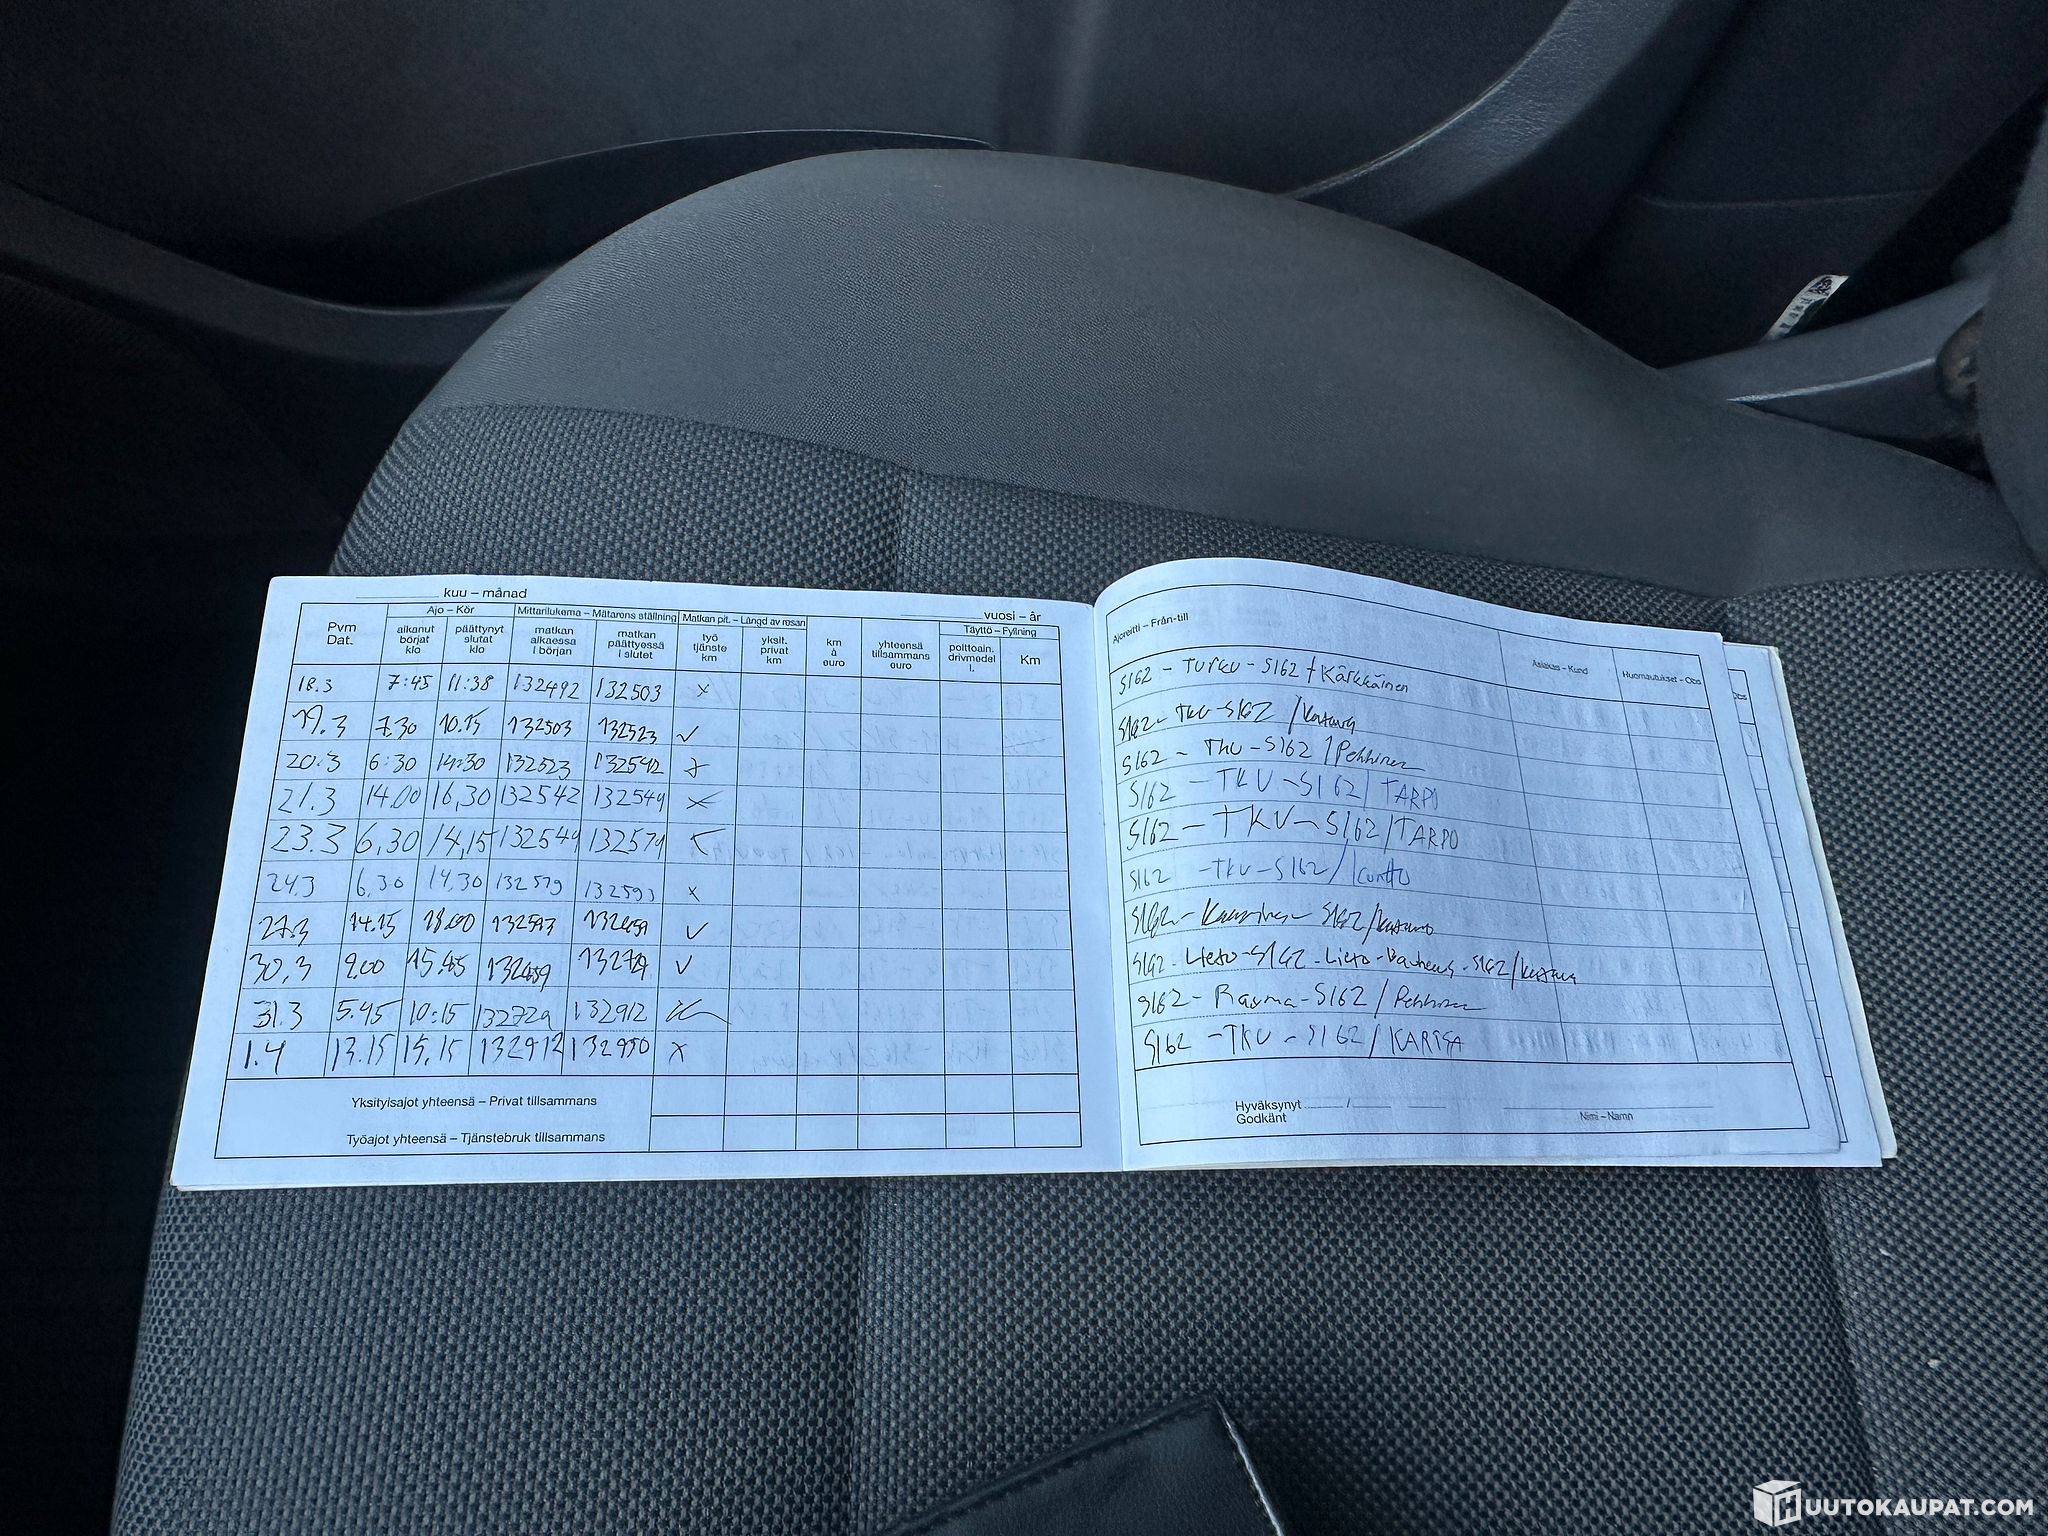 kuu – månad
vuosi – år
Pvm Dat.
Ajo – Kör
Mittarilukema – Mätarens ställning
Matkan pit. – Längd av resan
Täyttö – Fyllning
alkanut börjat klo
päättynyt slutat klo
matkan alkaessa i början
matkan päättyessä i slutet
työ tjänste km
yksit. privat km
km à euro
yhteensä tillsammans euro
polttoain. drivmedel l.
Km
18.3 7:45 11:38 132492 132503 x
19.3 7.30 10.15 132503 132523 ✓
20.3 6:30 14:30 132523 132542 x
21.3 14.00 16,30 132542 132549 x
23.3 6,30 14,15 132549 132579
24.3 6,30 14,30 132579 132593 x
27.3 14.15 18.00 132593 132659 ✓
30.3 9.00 15.45 132659 132729 ✓
31.3 5.45 10:15 132729 132912
1.4 13.15 15.15 132912 132950 x
Yksityisajot yhteensä – Privat tillsammans
Työajot yhteensä – Tjänstebruk tillsammans
Ajoreitti – Från-till
Asiakas – Kund
Huomautukset – Obs
S162 – Turku – S162 / Kärkkäinen
S162 – TKU – S162 /
S162 – TKU – S162 / Pekkinen
S162 – TKU – S162 / TARPO
S162 – TKU – S162 / TARPO
S162 – TKU – S162 /
S162 – Kaarina – S162 /
S162 – Lieto – S162 – Lieto – Bauhaus – S162 /
S162 – Rauma – S162 / Pekkinen
S162 – TKU – S162 /
Hyväksynyt
Godkänt
Nimi – Namn
HUUTOKAUPAT.COM